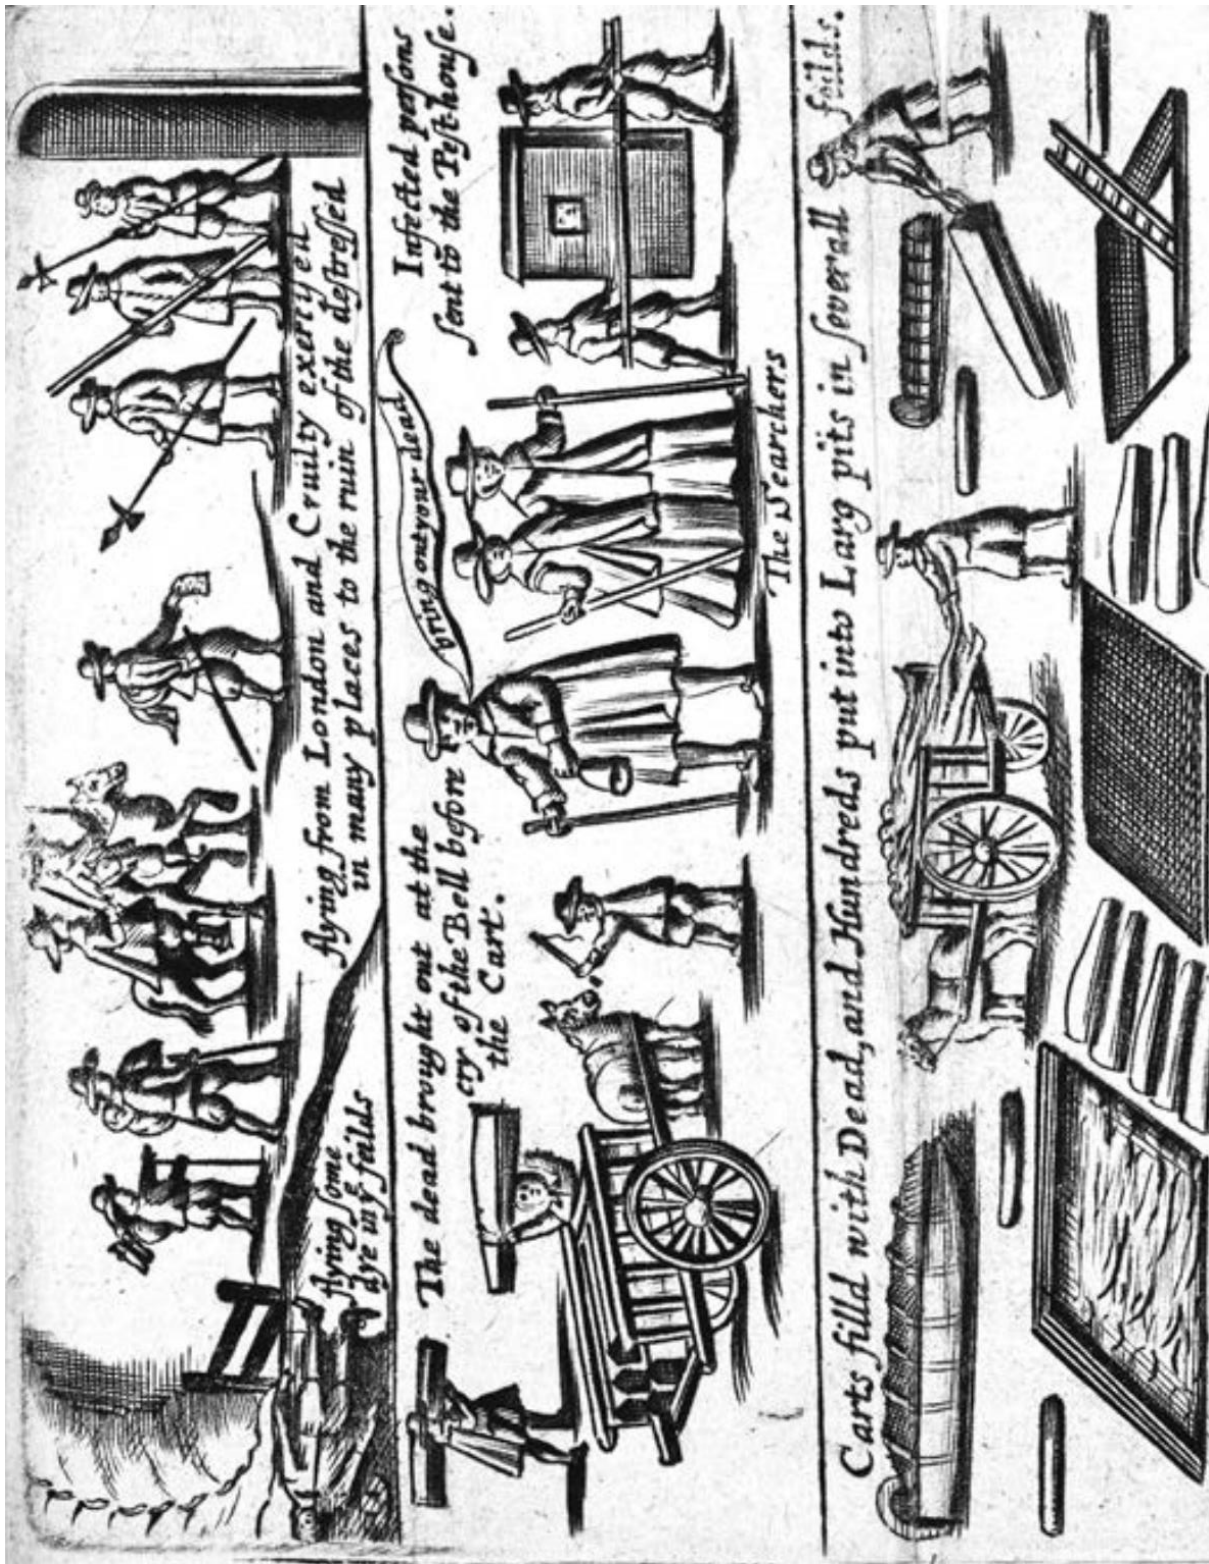 flying some
dye in yᵉ feilds
flying from London and Cruilty exercyed
in many places to the ruin of the destressed
The dead brought out at the
cry of the Bell before
the Cart.
bring out your dead
The Searchers
Infected persons
sent to the Pest-house.
Carts filld with Dead, and Hundreds put into Larg pits in severall feilds.